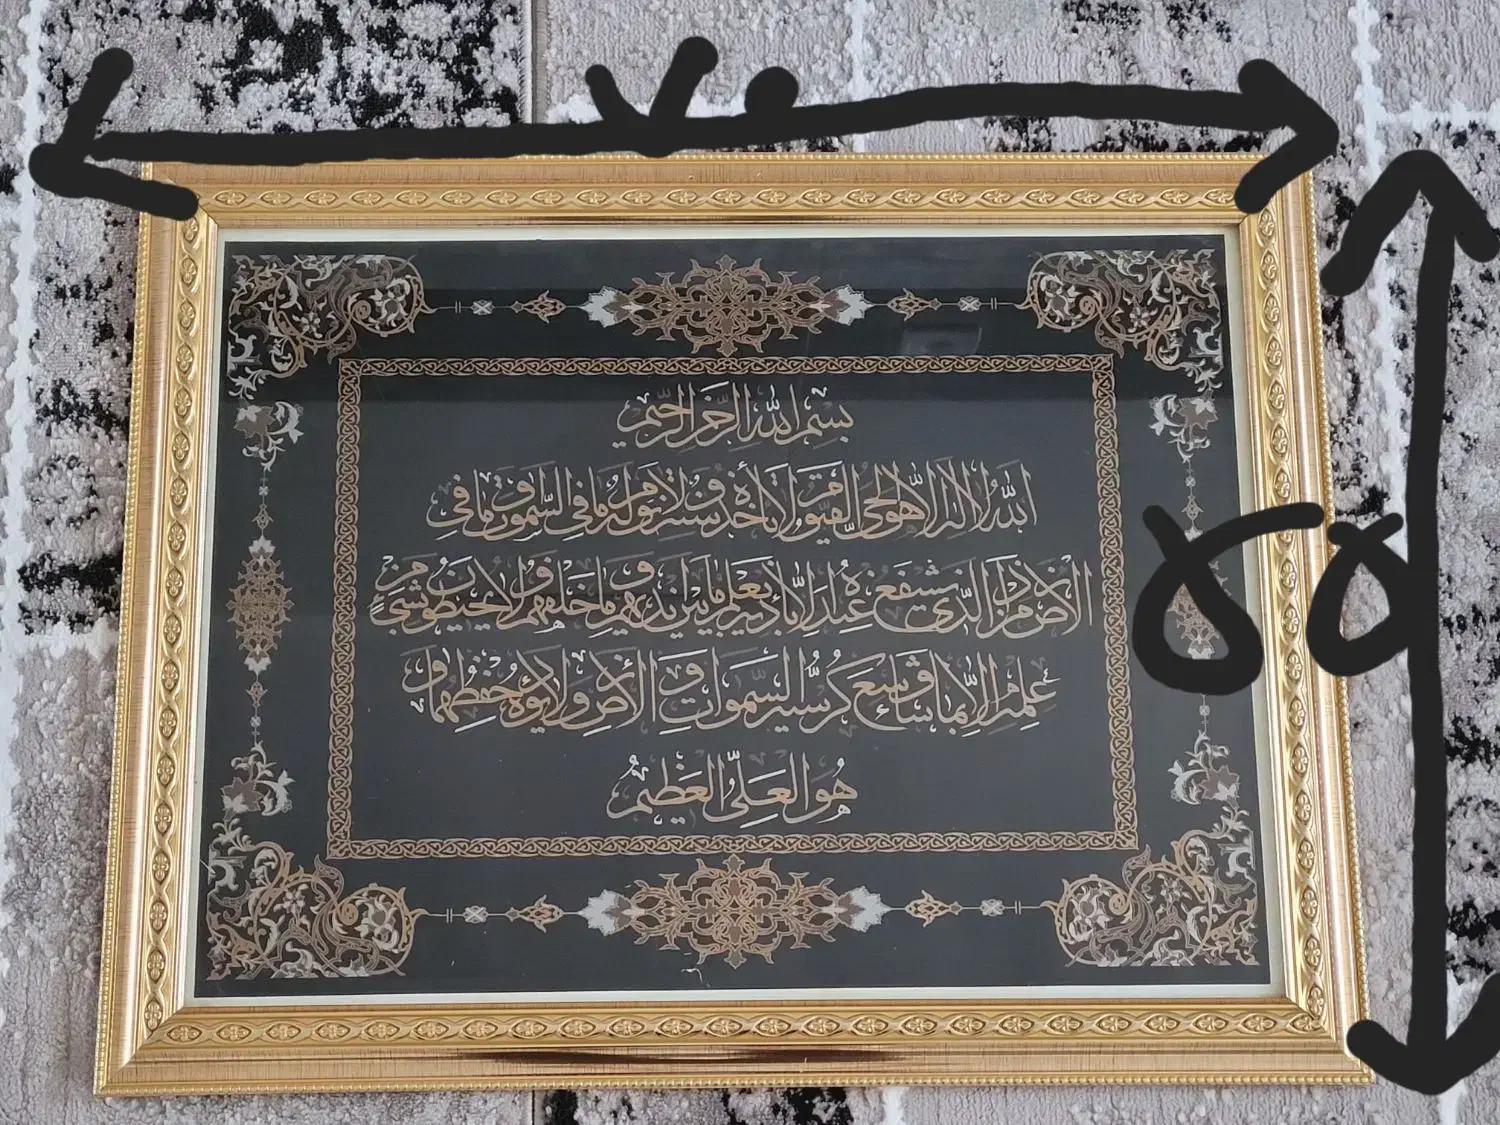 ۷۰
بسم الله الرحمن الرحيم
الله لا إله إلا هو الحي القيوم لا تأخذه سنة ولا نوم له ما في السموات وما في
الأرض من ذا الذي يشفع عنده إلا بإذنه يعلم ما بين أيديهم وما خلفهم ولا يحيطون بشيء من
علمه إلا بما شاء وسع كرسيه السموات والأرض ولا يؤده حفظهما و
هو العلي العظيم
۵۵